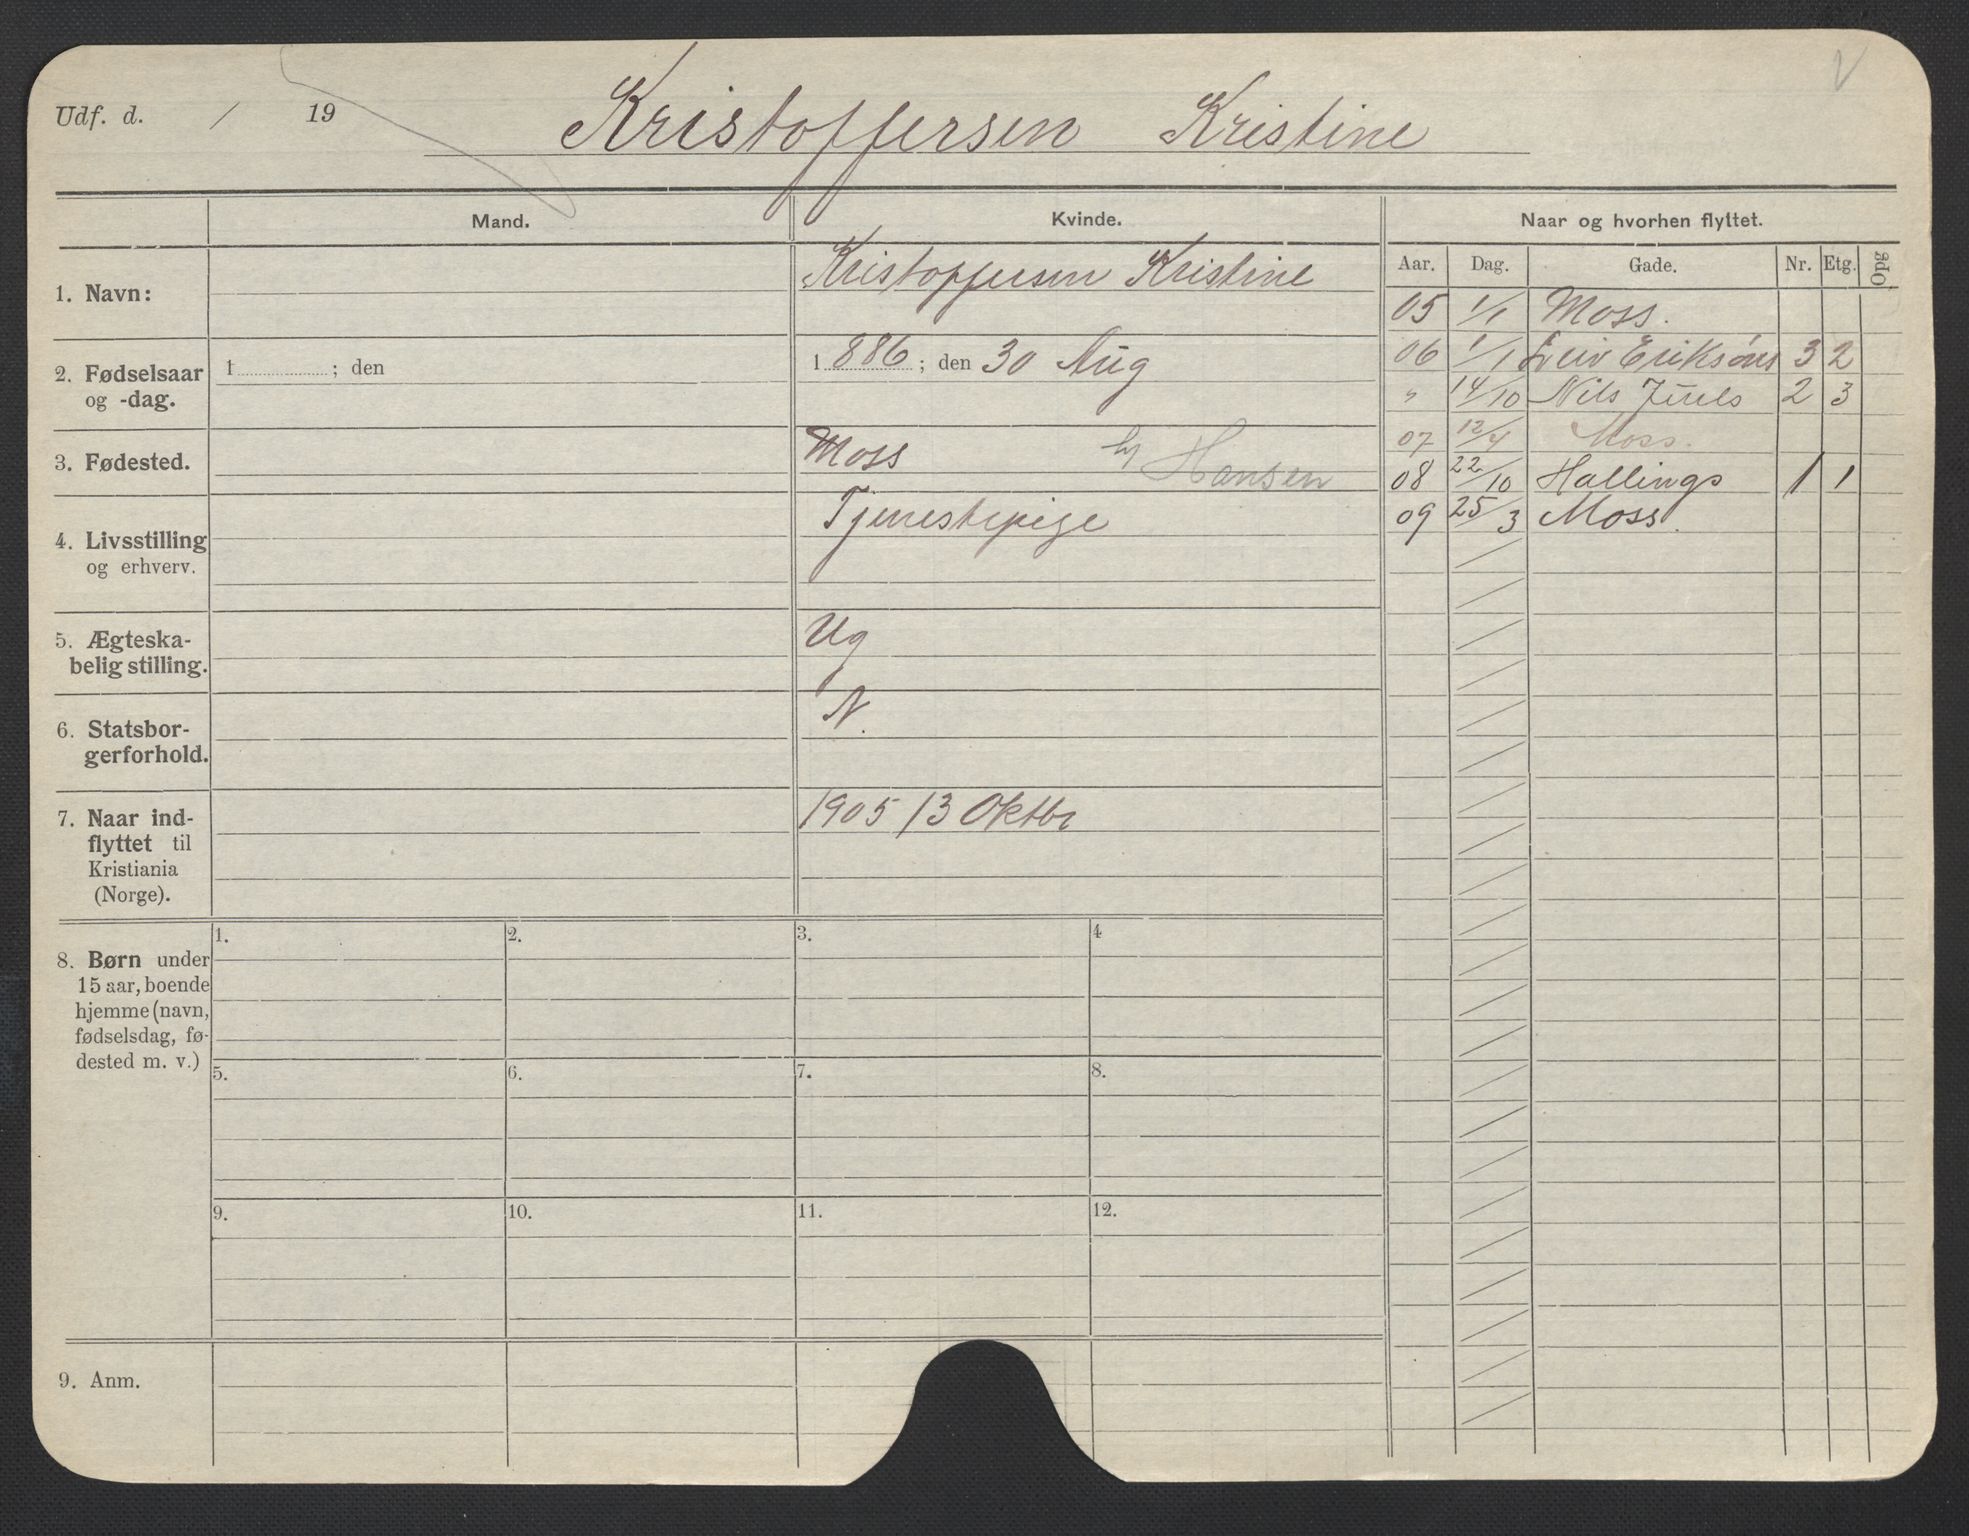 Udf. d. / 19 Kristoffersen Kristine
Mand. Kvinde. Naar og hvorhen flyttet.
Aar. Dag. Gade. Nr. Etg. Opg
1. Navn: Kristoffersen Kristine
05 1/1 Moss.
2. Fødselsaar og -dag. 1 ; den 1886 ; den 30 Aug
06 1/1 Leiv Eriksøns 3 2
" 14/10 Nils Juels 2 3
07 12/4 Moss.
3. Fødested. Moss h/ Hansen
08 22/10 Hallings 1 1
09 25/3 Moss.
4. Livsstilling og erhverv. Tjenestepige
5. Ægteska-
belig stilling. Ug
6. Statsbor-
gerforhold. N.
7. Naar ind-
flyttet til
Kristiania
(Norge). 1905 13 Oktbr
8. Børn under
15 aar, boende
hjemme (navn,
fødselsdag, fø-
dested m. v.)
1. 2. 3. 4
5. 6. 7. 8.
9. 10. 11. 12.
9. Anm.